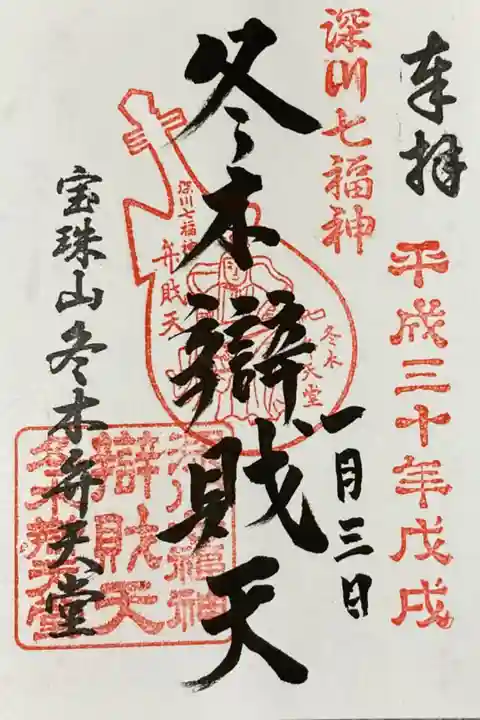 奉拝
平成三十年戊戌
一月三日
深川七福神
冬木辯財天
深川七福神
弁財天
冬木
天堂
辯財天
宝珠山冬木弁天堂